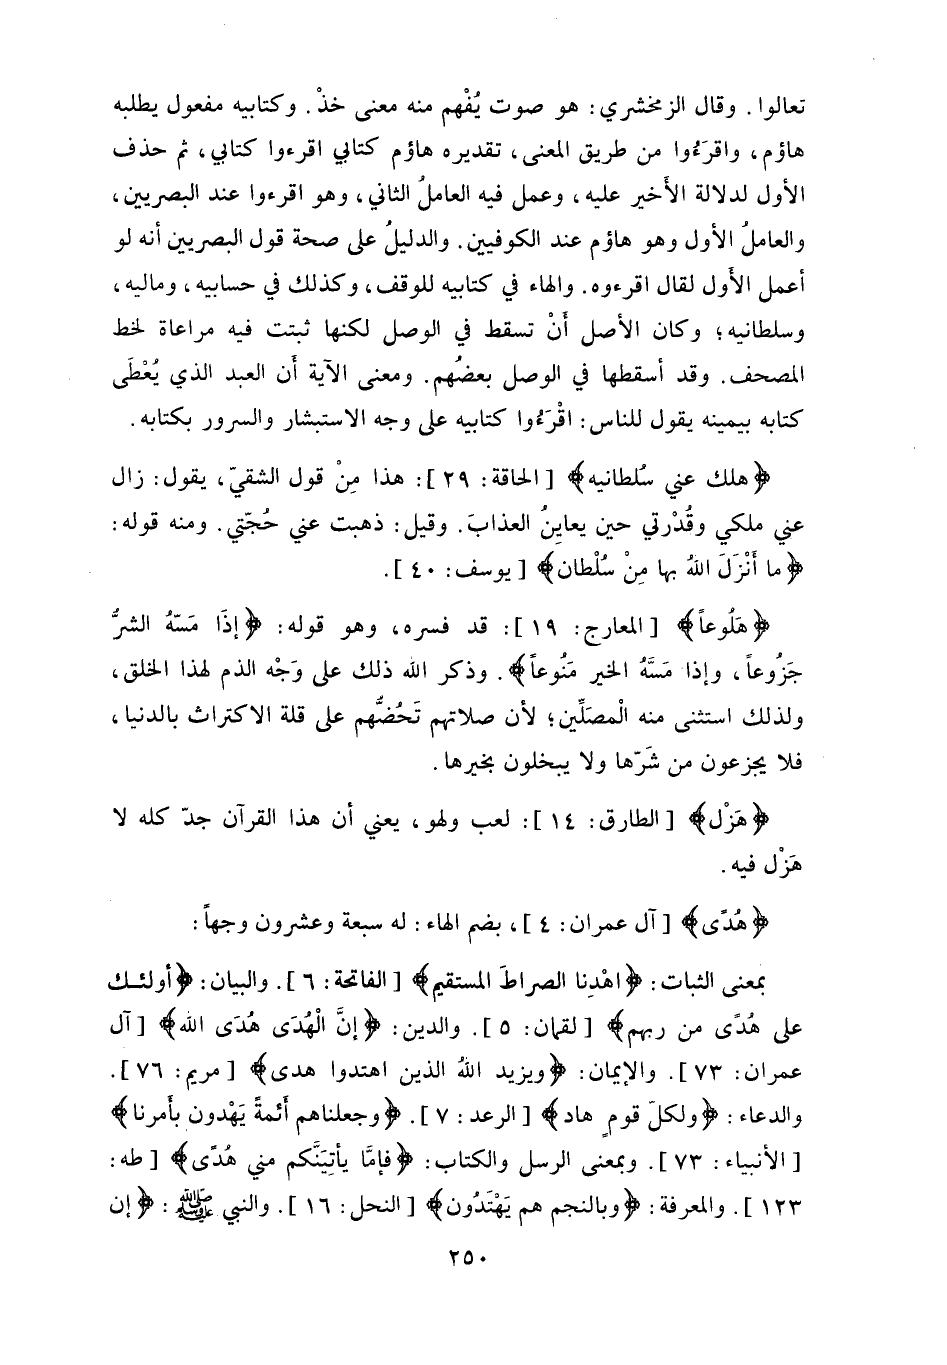 تعالوا. وقال الزمخشري: هو صوت يُفْهم منه معنى خذْ. وكتابيه مفعول يطلبه
هاؤم، واقرَءُوا من طريق المعنى، تقديره هاؤم كتابي اقرءوا كتابي، ثم حذف
الأول لدلالة الأَخير عليه، وعمل فيه العاملُ الثاني، وهو اقرءوا عند البصريين،
والعاملُ الأول وهو هاؤم عند الكوفيين. والدليلُ على صحة قول البصريين أنه لو
أعمل الأَول لقال اقرءوه. والهاء في كتابيه للوقف، وكذلك في حسابيه، وماليه،
وسلطانيه؛ وكان الأصل أَنْ تسقط في الوصل لكنها ثبتت فيه مراعاة لخط
المصحف. وقد أسقطها في الوصل بعضُهم. ومعنى الآية أَن العبد الذي يُعْطَى
كتابه بيمينه يقول للناس: اقْرَءُوا كتابيه على وجه الاستبشار والسرور بكتابه.
﴿هلك عني سُلطانيه﴾ [الحاقة: ٢٩]: هذا مِنْ قول الشقيّ، يقول: زال
عني ملكي وقُدْرتي حين يعاينُ العذابَ. وقيل: ذهبت عني حُجّتي. ومنه قوله:
﴿ما أَنْزَلَ اللهُ بها مِنْ سُلْطان﴾ [يوسف: ٤٠].
﴿هَلُوعاً﴾ [المعارج: ١٩]: قد فسره، وهو قوله: ﴿إذَا مَسّهُ الشرُّ
جَزُوعاً، وإذا مَسَّهُ الخير مَنُوعاً﴾. وذكر الله ذلك على وَجْه الذم لهذا الخلق،
ولذلك استثنى منه الْمصَلِّين؛ لأن صلاتهم تَحُضُّهم على قلة الاكتراث بالدنيا،
فلا يجزعون من شَرّها ولا يبخلون بخيرها.
﴿هَزْل﴾ [الطارق: ١٤]: لعب ولهو، يعني أن هذا القرآن جدّ كله لا
هَزْل فيه.
﴿هُدًى﴾ [آل عمران: ٤]، بضم الهاء: له سبعة وعشرون وجهاً:
بمعنى الثبات: ﴿اهْدِنا الصراطَ المستقيم﴾ [الفاتحة: ٦]. والبيان: ﴿أولئك
على هُدًى من ربهم﴾ [لقمان: ٥]. والدين: ﴿إنَّ الْهُدَى هُدَى الله﴾ [آل
عمران: ٧٣]. والإيمان: ﴿ويزيد اللهُ الذين اهتدوا هدى﴾ [مريم: ٧٦].
والدعاء: ﴿ولكلّ قومٍ هاد﴾ [الرعد: ٧]. ﴿وجعلناهم أَئمةً يَهْدون بأمرنا﴾
[الأنبياء: ٧٣]. وبمعنى الرسل والكتاب: ﴿فإمَّا يأتيَنَّكم مني هُدًى﴾ [طه:
١٢٣]. والمعرفة: ﴿وبالنجم هم يَهْتَدُون﴾ [النحل: ١٦]. والنبي ﷺ: ﴿إن
٢٥٠